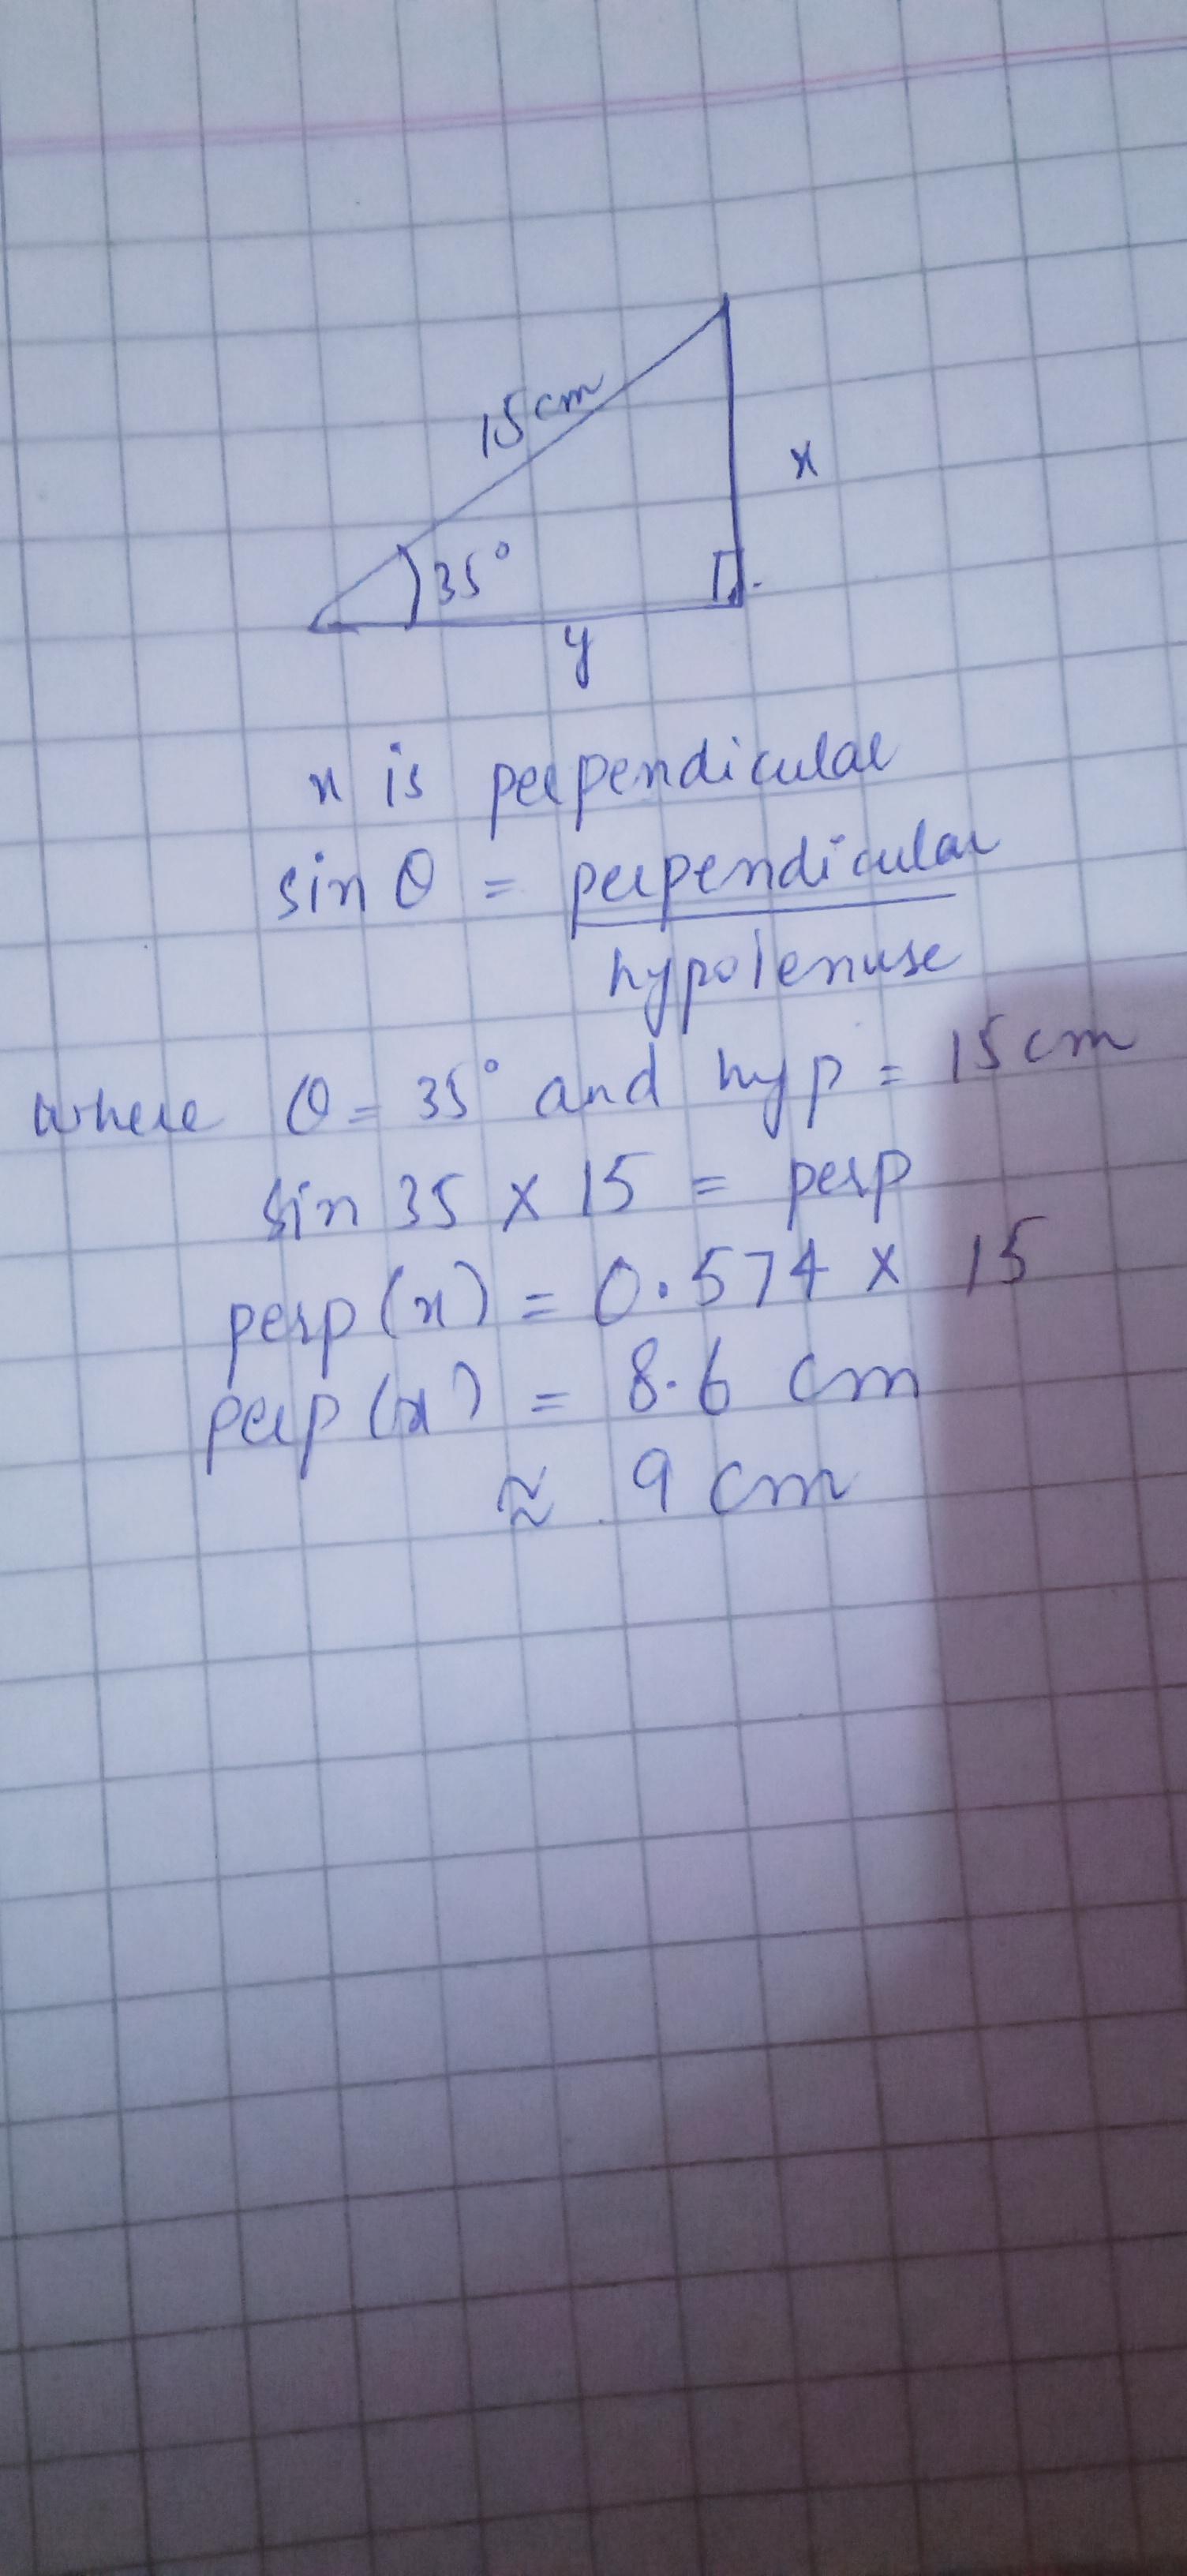 15 cm
x
35°
y
x is perpendicular
sin θ = perpendicular
hypotenuse
where θ = 35° and hyp = 15 cm
sin 35 × 15 = perp
perp (x) = 0.574 × 15
perp (x) = 8.6 cm
≈ 9 cm